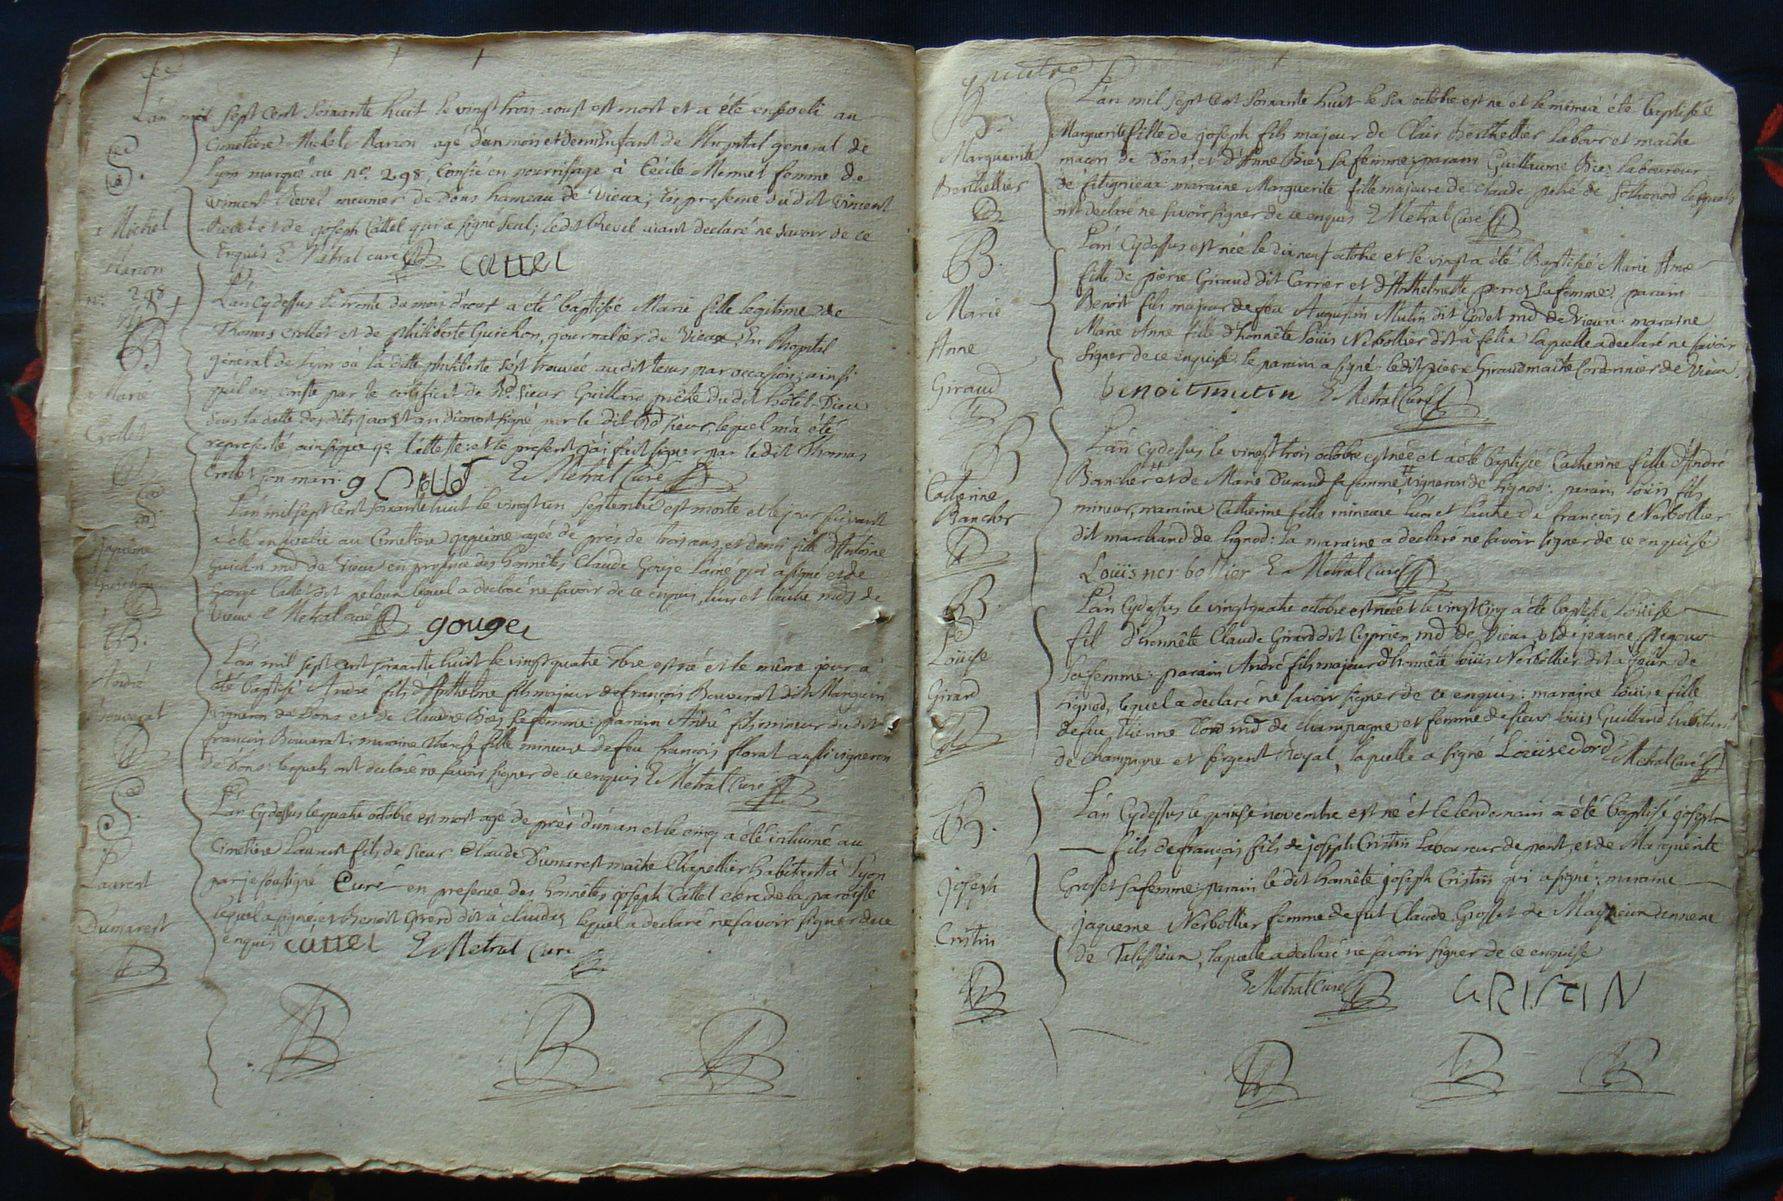 L'an mil sept cent soixante huit le vingt trois aoust est mort et a été enseveli au
Cimetiere Michel Marion agé d'un mois et demi Enfant de l'hopital general de
Lyon marqué au no. 298, Confié en nourrissage à Cécile Mermet femme de
vincent Brevet meunier de Dons hameau de Vieux; En presence dudit Vincent
Brevet et de joseph Cattel qui a signé seul; ledit Brevet aiant declaré ne savoir de ce
Enquis E Métral curé
cattel
S.
Michel
Marion
no. 298
L'an Cydessus le trente du mois d'aout a été baptisée Marie fille legitime de
Thomas Crollet et de philiberte Guichon, journalier de Vieux En l'hopital
general de Lyon où la ditte philiberte s'est trouvée audit tems par occasion; ainsi
qu'il en conste par le certificat de Sieur Guilland prêtre du dit hôtel-Dieu
sous la datte des dits jour et an
representé ainsi et le present j'ai fait signer par le dit Thomas
Crollet son mari.
E Metral Curé
B.
Marie
Crollet
L'an mil sept cent soixante huit le vingt un septembre est morte et le jour suivant
a été ensevelie au Cimetiere agée de près de trois ans et demi fille d'Antoine
Guichon md de Vieux en presence des honnêtes Claude Gouge l'ainé qui a signé et de
George Cattel dit pelaou lequel a declaré ne savoir de ce enquis, l'un et l'autre mds de
Vieux E Metral curé
gouge
S.
L'an mil sept cent soixante huit le vingt quatre 7bre est né et le même jour a
été baptisé André fils d'Anthelme fils majeur de françois Bouvarat dit Marquin
vigneron de Dons et de Claudine Biez sa femme: parain André fils mineur du dit
francois Bouvarat; maraine fille mineure de feu francois florat aussi vigneron
de Dons: lequels ont declaré ne savoir signer de ce enquis E Metral Curé
B.
André
Bouvarat
L'an Cydessus le quatre octobre est mort agé de près d'un an et le cinq a été inhumé au
Cimetiere Laurent fils de sieur Claude Dumarest maitre Chapellier habitant à Lyon
par je soussigné Curé en presence des honnêtes joseph Cattel clerc de la paroisse
lequel a signé et Benoit Girerd dit à claudy lequel a declaré ne savoir signer de ce
enquis cattel E Metral Curé
S.
Laurent
Dumarest
quatre
L'an mil sept cent soixante huit le six octobre est né et le même a été baptisée
Marguerite fille de joseph fils majeur de Clair Berthellier labour et maitre
maçon de Dons et d'Anne Biez sa femme: parain Guillaume Biez laboureur
de fitignieux maraine Marguerite fille majeure de Claude pehé de Sothonod lesquels
ont declaré ne savoir signer de ce enquis E Metral Curé
B.
Marguerite
Berthellier
L'an Cydessus est née le dix neuf octobre et le vingt a été Baptisée Marie Anne
fille de pierre Giraud dit Carrier et d'Anthelmette perret sa femme: parain
Benoit fils majeur de feu Augustin Mutin dit Godet md de Vieux: maraine
Marie Anne fille d'honnête Louis Nerbollier dit à felix laquelle a declaré ne savoir
signer de ce enquise le parain a signé: ledit pierre Giraud maitre Cordonnier de Vieux.
benoit mutin E Metral Curé
B.
Marie
Anne
Giraud
L'an Cydessus le vingt trois octobre est née et a été baptisée Catherine fille d'André
Bancher et de Marie Durand sa femme, vigneron de Lignod: parain Louis fils
mineur, maraine Catherine fille mineure l'un et l'autre de francois Nerbollier
dit marchand de Lignod: la maraine a declaré ne savoir signer de ce enquise
Loüis nerbollier E Metral Curé
B
Catherine
Bancher
L'an Cydessus le vingt quatre octobre est née et le vingt Cinq a été baptisée Louise
fil d'honnête Claude Girard dit Cyprien md de Vieux et de jeanne
sa femme: parain André fils majeur d'honnête Loüis Nerbollier dit de
Lignod, lequel a declaré ne savoir signer de ce enquis: maraine Louise fille
de feu Etienne Dord md de Champagne et femme de sieur Louis Guilland habitant
de Champagne et sergent Royal, laquelle a signé Loüise dord E Metral Curé
B.
Loüise
Girard
L'an Cydessus le onse novembre est né et le lendemain a été baptisé joseph
fils de françois fils de joseph Cristin Laboureur de pont, et de Marguerite
Grosset sa femme: parain le dit honnête joseph Cristin qui a signé; maraine
jaqueme Nerbollier femme de fut Claude Grosset de
de Talissieux, laquelle a declaré ne savoir signer de ce enquise
E Metral Curé
CRISTIN
B.
joseph
Cristin